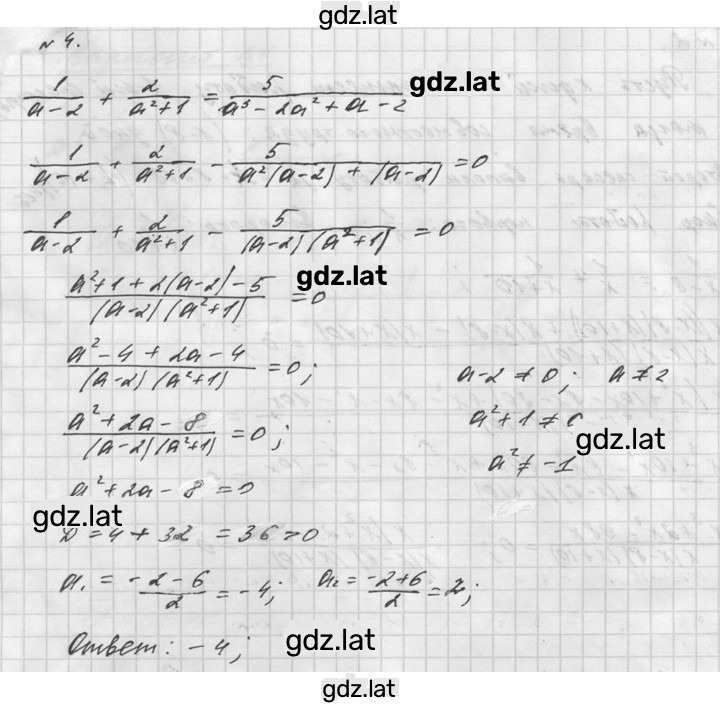 gdz.lat
№ 4.
1/(a-2) + 2/(a²+1) = 5/(a³-2a²+a-2) gdz.lat
1/(a-2) + 2/(a²+1) - 5/(a²(a-2)+(a-2)) = 0
1/(a-2) + 2/(a²+1) - 5/((a-2)(a²+1)) = 0
(a²+1+2(a-2)-5)/((a-2)(a²+1)) = 0 gdz.lat
(a²-4+2a-4)/((a-2)(a²+1)) = 0; a-2≠0; a≠2
(a²+2a-8)/((a-2)(a²+1)) = 0; a²+1≠0 gdz.lat
a²≠-1
a²+2a-8=0
gdz.lat
D=4+32=36>0
a₁ = (-2-6)/2 = -4; a₂ = (-2+6)/2 = 2;
Ответ: -4; gdz.lat
gdz.lat